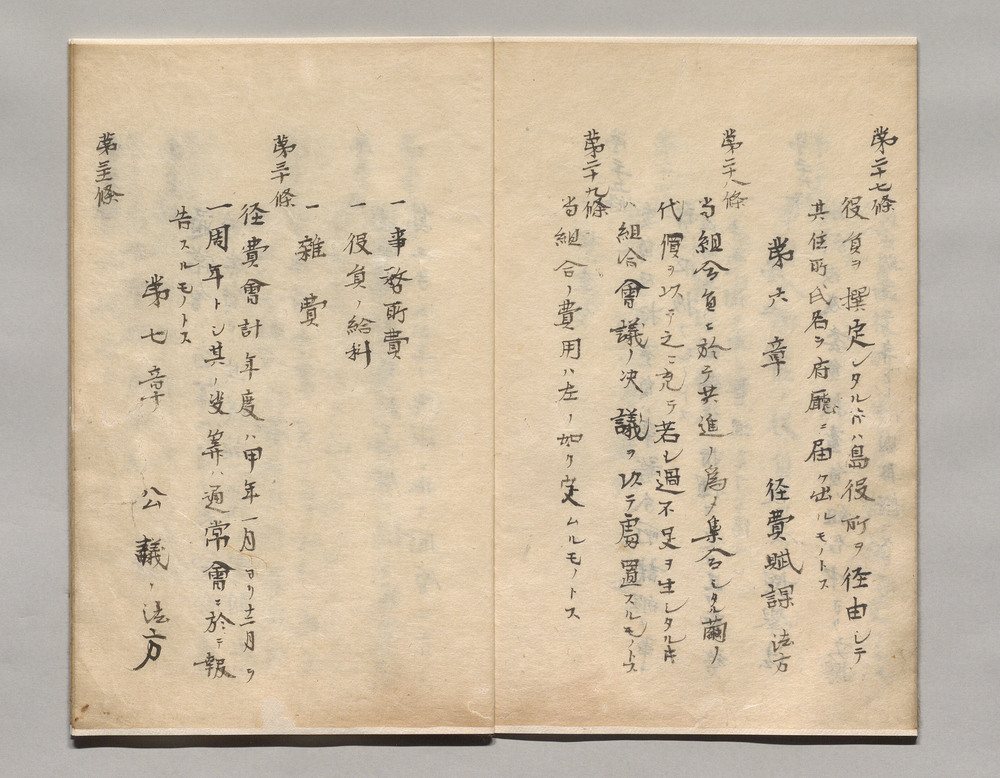 第二十七條
役員ヲ撰定シタル片ハ島役所ヲ径由シテ
其住所氏名ヲ府廳ニ届ケ出ルモノトス
第六章 径費賦課法方
第二十八條
当組合員ニ於テ共進ノ為メ集合シタル繭ノ
代價ヲ以テ之ニ充テ若シ過不足ヲ生シタル片
ハ組合會議ノ决議ヲ以テ處置スルモノトス
第二十九條
当組合ノ費用ハ左ノ如ク定ムルモノトス
一 事務所費
一 役員ノ給料
一 雑費
第三十條
径費會計年度ハ甲年一月ヨリ十二月ヲ
一周年トシ其ノ决算ハ通常會ニ於テ報
告スルモノトス
第七章 公議ノ法方
第三十一條